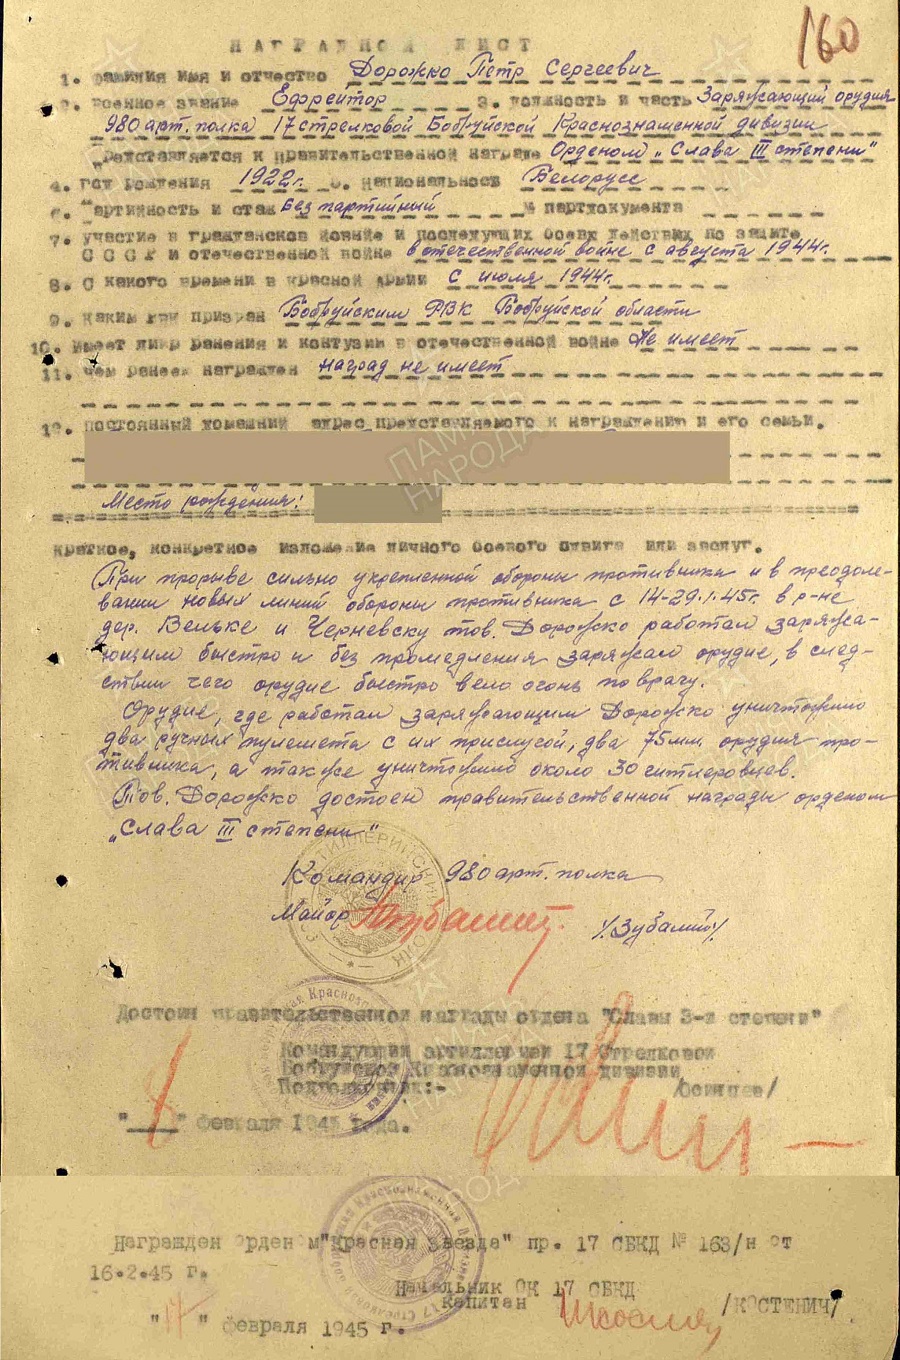 160
НАГРАДНОЙ ЛИСТ
1. Фамилия имя и отчество Дорожко Петр Сергеевич
2. Военное звание Ефрейтор 3. должность и часть Заряжающий орудия
980 арт. полка 17 стрелковой Бобруйской Краснознаменной дивизии
Представляется к правительственной награде Орденом „Слава III степени"
4. Год рождения 1922г. 5. Национальность Белорусс
6. Партийность и стаж Без партийный № партдокумента
7. участие в гражданской войне и последующих боевых действиях по защите
СССР и отечественной войне в отечественной войне с августа 1944г.
8. С какого времени в красной армии с июля 1944г.
9. каким РВК призван Бобруйским РВК Бобруйской области
10. Имеет ли ранения и контузии в отечественной войне Не имеет
11. чем ранее награжден наград не имеет
12. постоянный домашний адрес представляемого к награждению и его семьи.
Место рождения:
краткое, конкретное изложение личного боевого подвига или заслуг.
При прорыве сильно укрепленной обороны противника и в преодоле-
вании новых линий обороны противника с 14-29.1.45г. в р-не
дер. Вельке и Черневску тов. Дорожко работал заряжа-
ющим быстро и без промедления заряжал орудие, в след-
ствии чего орудие быстро вело огонь по врагу.
Орудие, где работал заряжающим Дорожко уничтожило
два ручных пулемета с их прислугой, два 75мм орудия про-
тивника, а также уничтожило около 30 гитлеровцев.
Тов. Дорожко достоен правительственной награды орденом
„Слава III степени"
Командир 980 арт. полка
Майор /Зубалий/
Достоин правительственной награды ордена "Славы 3-й степени"
Командующий артиллерией 17 Стрелковой
Бобруйской Краснознаменной дивизии
Подполковник:- /Осипцев/
"8" февраля 1945 года.
Награжден Орденом "Красная Звезда" пр. 17 СБКД № 163/н от
16.2.45 г.
Начальник ОК 17 СБКД
капитан /КОСТЕНИЧ/
"17" февраля 1945 г.
ПАМЯТЬ
НАРОДА